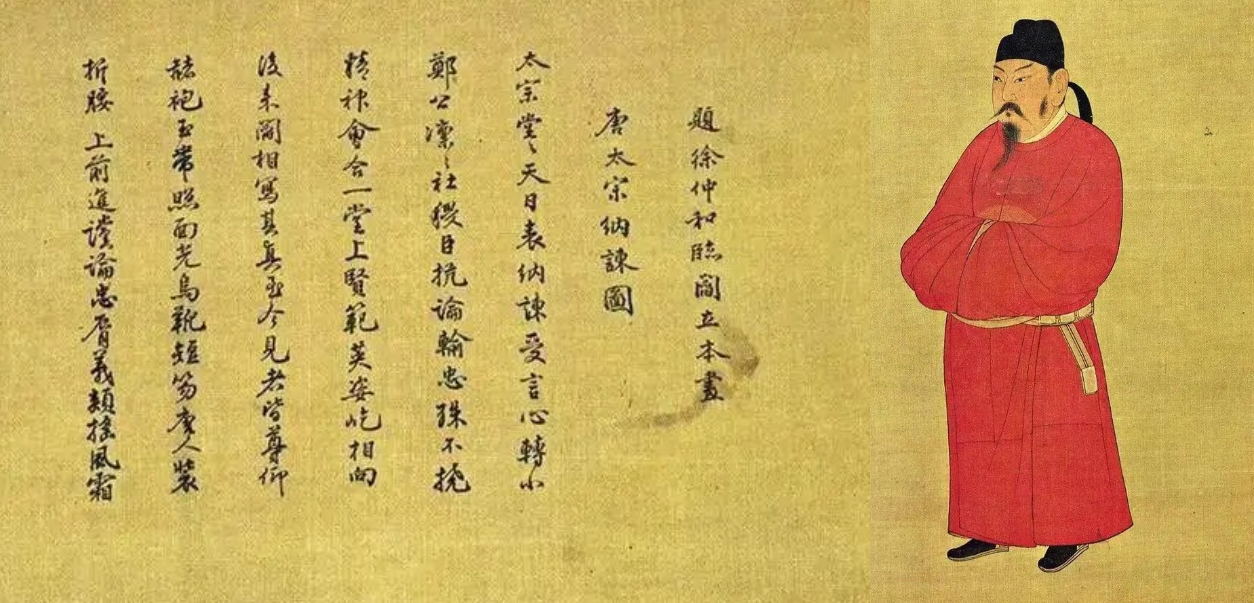 題徐仲和臨閻立本畫
唐太宗納諫圖
太宗堂〻天日表納諫受言心轉小
鄭公凜〻社稷臣抗論輸忠殊不撓
精神會合一堂上賢範英姿屹相向
後來閻相寫其真至今見者皆尊仰
赭袍玉帶照面光烏靴短笏唐人裝
折腰上前進讜論忠脣義頰搖風霜